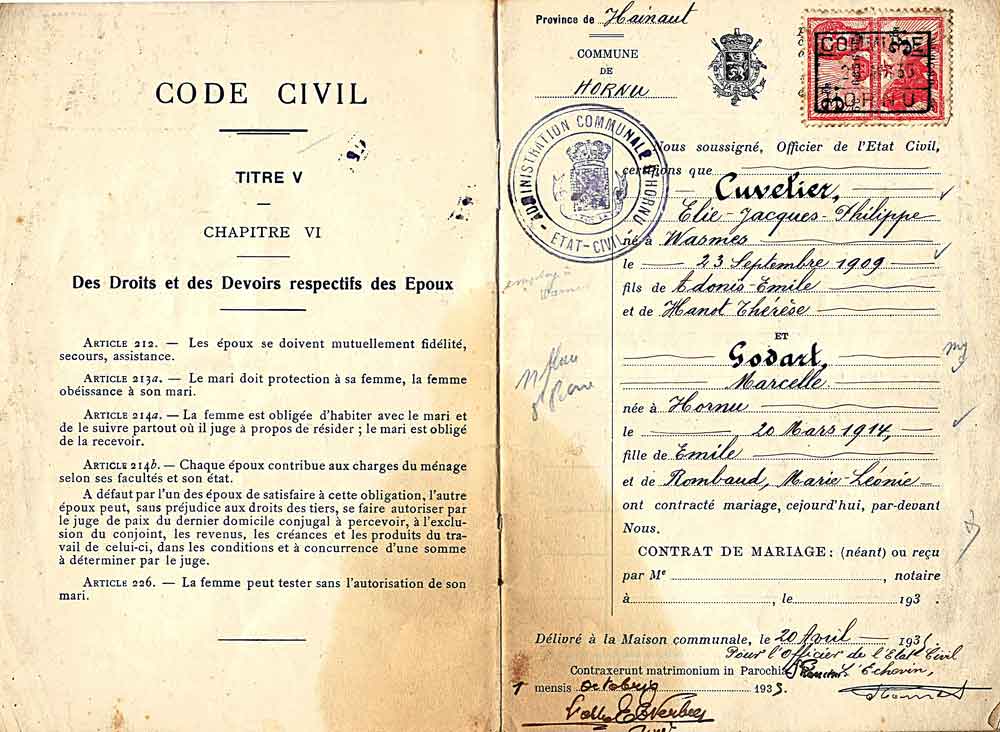 CODE CIVIL
TITRE V
CHAPITRE VI
Des Droits et des Devoirs respectifs des Epoux
ARTICLE 212. — Les époux se doivent mutuellement fidélité,
secours, assistance.
ARTICLE 213a. — Le mari doit protection à sa femme, la femme
obéissance à son mari.
ARTICLE 214a. — La femme est obligée d'habiter avec le mari et
de le suivre partout où il juge à propos de résider ; le mari est obligé
de la recevoir.
ARTICLE 214b. — Chaque époux contribue aux charges du ménage
selon ses facultés et son état.
A défaut par l'un des époux de satisfaire à cette obligation, l'autre
époux peut, sans préjudice aux droits des tiers, se faire autoriser par
le juge de paix du dernier domicile conjugal à percevoir, à l'exclu-
sion du conjoint, les revenus, les créances et les produits du tra-
vail de celui-ci, dans les conditions et à concurrence d'une somme
à déterminer par le juge.
ARTICLE 226. — La femme peut tester sans l'autorisation de son
mari.
Province de Hainaut
COMMUNE
DE
HORNU
COMMUNE
HORNU
ADMINISTRATION COMMUNALE HORNU
ETAT-CIVIL
Nous soussigné, Officier de l'Etat Civil,
certifions que
Cuvelier,
Elie-Jacques-Philippe
né à Wasmes
le 23 Septembre 1909
fils de Edonis-Emile
et de Hanot Thérèse
ET
Godart,
Marcelle
née à Hornu
le 20 Mars 1914,
fille de Emile
et de Rombaud, Marie-Léonie
ont contracté mariage, cejourd'hui, par-devant
Nous.
CONTRAT DE MARIAGE : (néant) ou reçu
par Me , notaire
à , le 193 .
Délivré à la Maison communale, le 20 Avril 193
Pour l'Officier de l'Etat Civil
L'Echevin,
Contraxerunt matrimonium in Parochia
1 mensis octobris 1935.